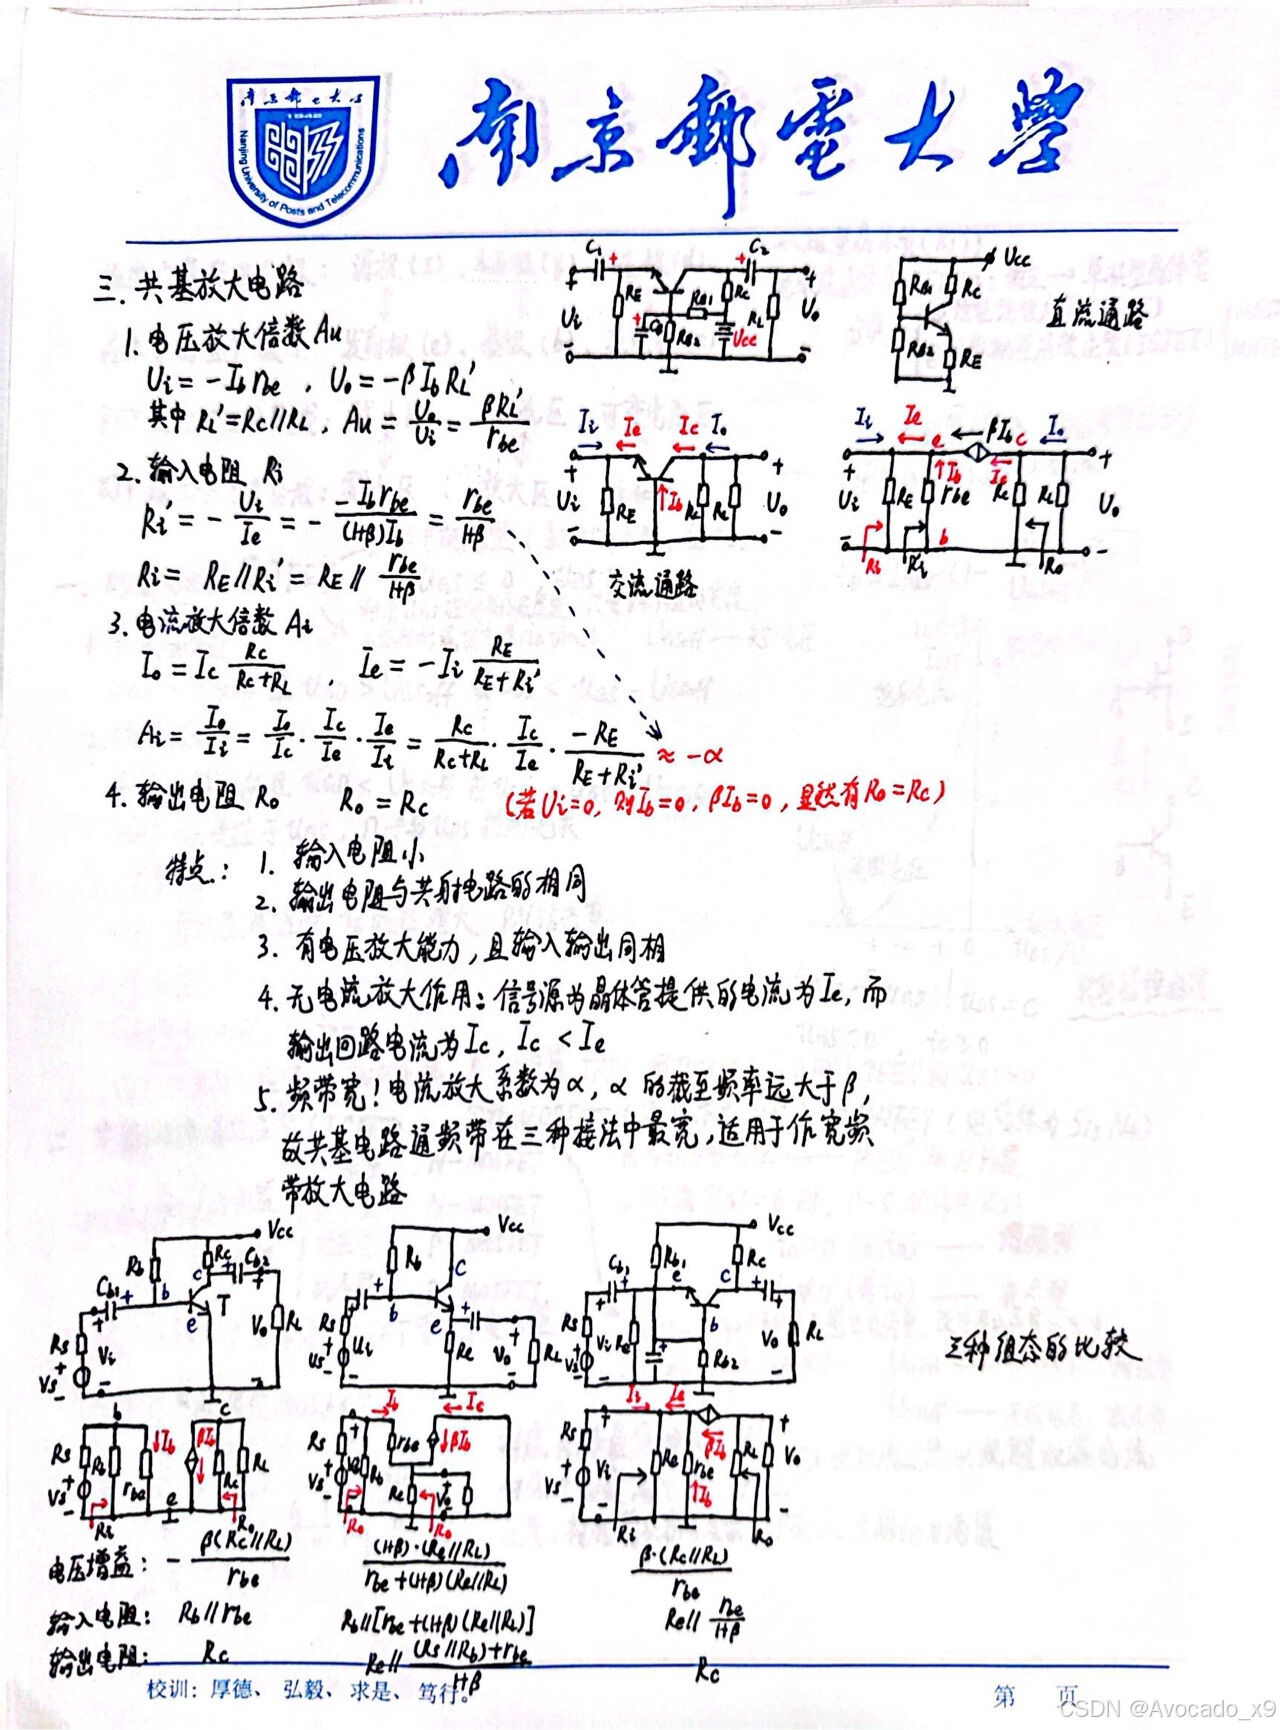 南京邮电大学
1942
Nanjing University of Posts and Telecommunications
南京郵電大學
三. 共基放大电路
1. 电压放大倍数 Au
Ui = -Ib rbe , Uo = -β Ib RL'
其中 RL' = Rc//RL, Au = Uo/Ui = βRL'/rbe
2. 输入电阻 Ri
Ri' = - Ui/Ie = - -Ib rbe/(1+β)Ib = rbe/1+β
Ri = RE//Ri' = RE // rbe/1+β
3. 电流放大倍数 Ai
Io = Ic Rc/Rc+RL , Ie = -Ii RE/RE+Ri'
Ai = Io/Ii = Io/Ic · Ic/Ie · Ie/Ii = Rc/Rc+RL · Ic/Ie · -RE/RE+Ri' ≈ -α
4. 输出电阻 Ro Ro = Rc (若Ui=0, 则Ib=0, βIb=0, 显然有Ro=Rc)
C1 + + C2
+ RE RB1 Rc +
Ui + CB RB2 Vcc RL Uo
- -
Vcc
RB1 Rc
RB2 RE
直流通路
Ii Ie Ic Io
+ +
Ui RE Ib Rc RL Uo
- -
交流通路
Ii Ie e βIb c Io
+ Ib Ic +
Ui RE rbe Rc RL Uo
- Ri Ri' b Ro -
特点: 1. 输入电阻小
2. 输出电阻与共射电路的相同
3. 有电压放大能力, 且输入输出同相
4. 无电流放大作用: 信号源为晶体管提供的电流为Ie, 而
输出回路电流为Ic, Ic < Ie
5. 频带宽! 电流放大系数为α, α的截至频率远大于β,
故共基电路通频带在三种接法中最宽, 适用于作宽频
带放大电路
Vcc
Rb Rc Cb2
Cb1 + b c +
T
e
Rs Vi Vo RL
Vs
Vcc
Rb c
b
e
Rs Ui Re Vo RL
Us
Vcc
Cb1 Rb1 e c Rc
b
Rs Vi Re Rb2 Vo RL
Vs
三种组态的比较
b c
Rs Rb rbe Ib βIb Rc RL
Vs
e
Ri Ro
Ib Ic
Rs Rb rbe βIb
Vs Re Vo
Ro Ro
Ii Ie
Rs Vi Re rbe βIb RL Vo
Vs Ib
Ri Ro
电压增益: - β(Rc//RL)/rbe (1+β)·(Re//RL)/rbe+(1+β)(Re//RL) β·(Rc//RL)/rbe
输入电阻: Rb//rbe Rb//[rbe+(1+β)(Re//RL)] Re// rbe/1+β
输出电阻: Rc Re// (Rs//Rb)+rbe/1+β Rc
校训: 厚德、弘毅、求是、笃行。
第 页
CSDN @Avocado_x9